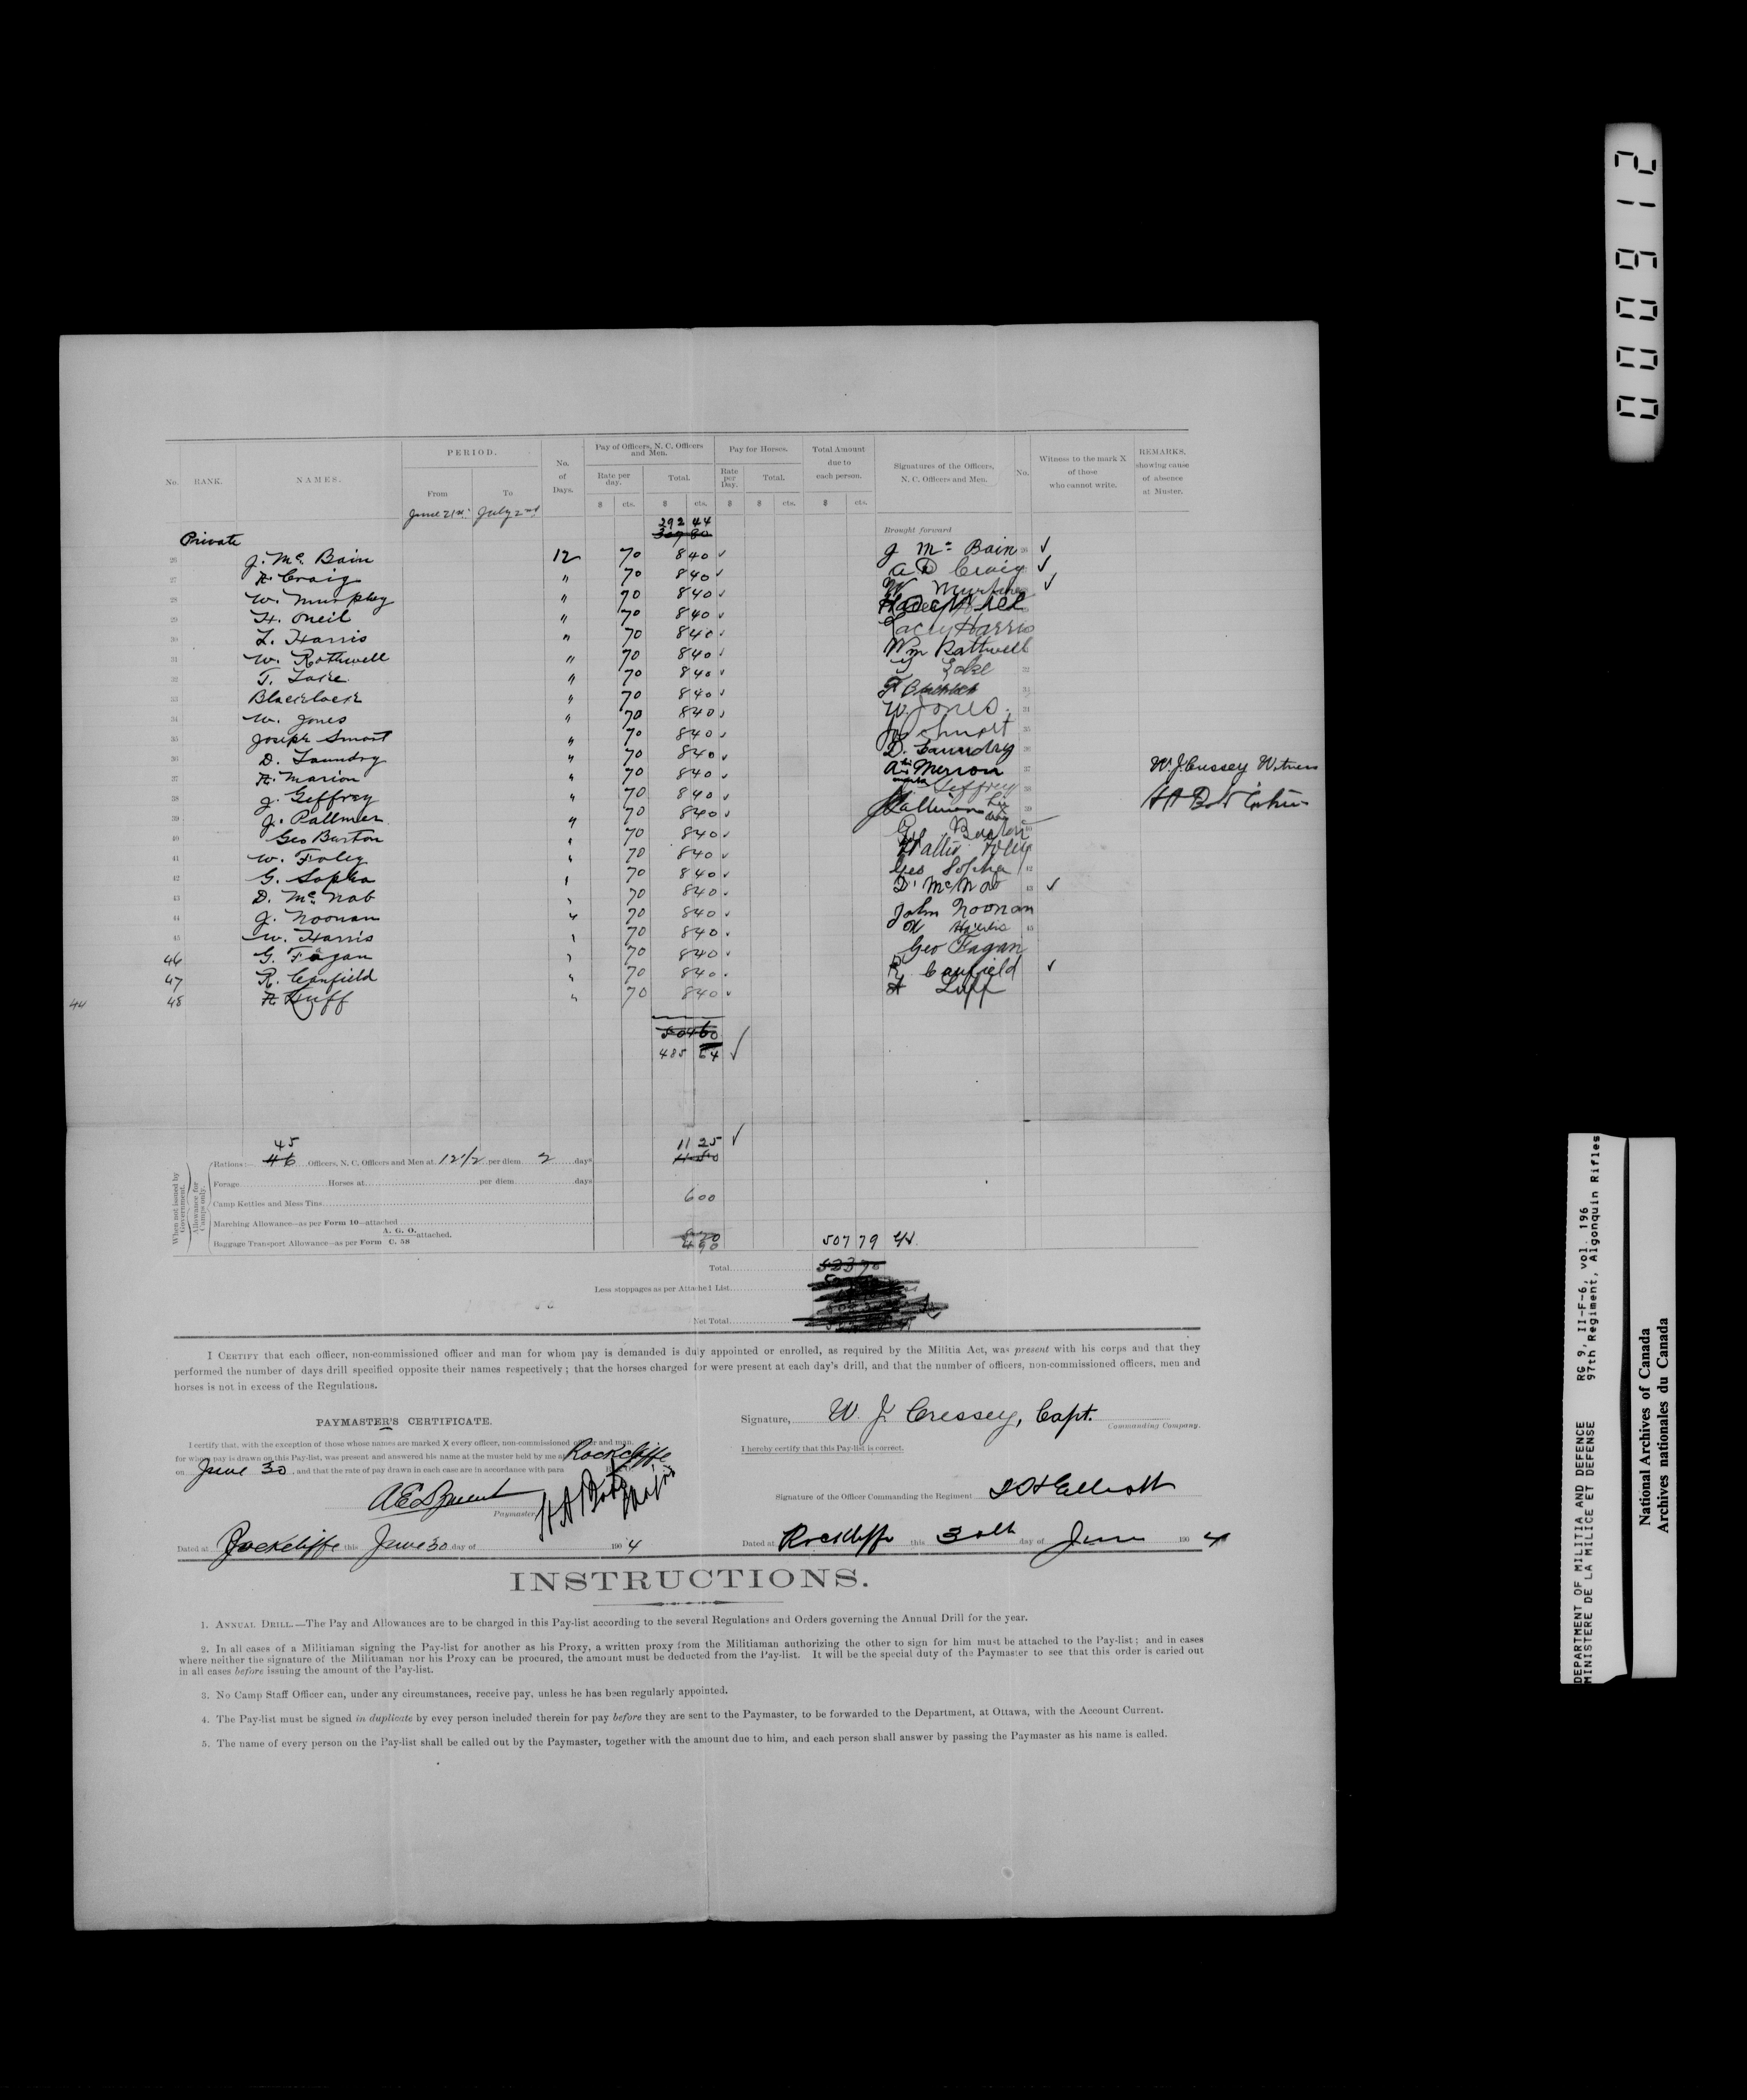 No. RANK. NAMES. PERIOD. From To No. of Days. Pay of Officers, N. C. Officers and Men. Rate per day. Total. Pay for Horses. Rate per Day. Total. Total Amount due to each person. Signatures of the Officers, N. C. Officers and Men. No. Witness to the mark X of those who cannot write. REMARKS, showing cause of absence at Muster.
$ cts. $ cts. $ $ cts. $ cts.
June 21st July 2nd
292 44
307 80 Brought forward
Private
26 J. Mc Bain 12 70 8 40 J Mc Bain 26
27 A. Craig " 70 8 40 A D Craig
28 W. Murphy " 70 8 40 W Murphy
29 H. Oneil " 70 8 40
30 L. Harris " 70 8 40 Lacey Harris
31 W. Rothwell " 70 8 40 Wm Rathwell
32 T. Lake " 70 8 40 Lake 32
33 Blacklock " 70 8 40
34 W. Jones " 70 8 40 W. Jones. 34
35 Joseph Smart " 70 8 40 Jos Smart 35
36 D. Laundry " 70 8 40 D. Laundry 36
37 A. Marion " 70 8 40 A Merron his mark 37 W J Cressey Witness
38 J. Geffrey " 70 8 40 Geffrey 38
39 J. Pallmer " 70 8 40 his 39
40 Geo Burton " 70 8 40 G
41 W. Foley " 70 8 40 Foley
42 G. Sopha " 70 8 40 Geo Sopha 42
43 D. Mc Nab " 70 8 40 D. McNab 43
44 J. Noonan " 70 8 40 John Noonan
45 W. Harris " 70 8 40 W Harris 45
46 G. Fagan " 70 8 40 Geo Fagan
47 R. Canfield " 70 8 40 R. Canfield
44 48 A. Luff " 70 8 40 A Luff
504 60
485 64
When not issued by Government. Allowance for Camps only.
45 11 25
Rations:— 46 Officers, N. C. Officers and Men at 12 1/2 per diem 2 days 11 50
Forage Horses at per diem days
Camp Kettles and Mess Tins 6 00
Marching Allowance—as per Form 10—attached
Baggage Transport Allowance—as per Form A. G. O. C. 58 attached. 4 90 507 79
Total 523 70
Less stoppages as per Attached List
Net Total
I CERTIFY that each officer, non-commissioned officer and man for whom pay is demanded is duly appointed or enrolled, as required by the Militia Act, was present with his corps and that they
performed the number of days drill specified opposite their names respectively ; that the horses charged for were present at each day's drill, and that the number of officers, non-commissioned officers, men and
horses is not in excess of the Regulations.
PAYMASTER'S CERTIFICATE.
I certify that, with the exception of those whose names are marked X every officer, non-commissioned officer and man,
for whom pay is drawn on this Pay-list, was present and answered his name at the muster held by me at Rockcliffe
on June 30, and that the rate of pay drawn in each case are in accordance with para
Paymaster
Dated at Rockcliffe this June 30 day of 190 4
Signature, W. J. Cressey, Capt.
Commanding Company.
I hereby certify that this Pay-list is correct.
Signature of the Officer Commanding the Regiment
Dated at Rockcliffe this 30th day of June 190 4
INSTRUCTIONS.
1. ANNUAL DRILL.—The Pay and Allowances are to be charged in this Pay-list according to the several Regulations and Orders governing the Annual Drill for the year.
2. In all cases of a Militiaman signing the Pay-list for another as his Proxy, a written proxy from the Militiaman authorizing the other to sign for him must be attached to the Pay-list ; and in cases
where neither the signature of the Militiaman nor his Proxy can be procured, the amount must be deducted from the Pay-list. It will be the special duty of the Paymaster to see that this order is caried out
in all cases before issuing the amount of the Pay-list.
3. No Camp Staff Officer can, under any circumstances, receive pay, unless he has been regularly appointed.
4. The Pay-list must be signed in duplicate by evey person included therein for pay before they are sent to the Paymaster, to be forwarded to the Department, at Ottawa, with the Account Current.
5. The name of every person on the Pay-list shall be called out by the Paymaster, together with the amount due to him, and each person shall answer by passing the Paymaster as his name is called.
000912
DEPARTMENT OF MILITIA AND DEFENCE RG 9, II-F-6, vol. 196
MINISTERE DE LA MILICE ET DEFENSE 97th Regiment, Algonquin Rifles
National Archives of Canada
Archives nationales du Canada